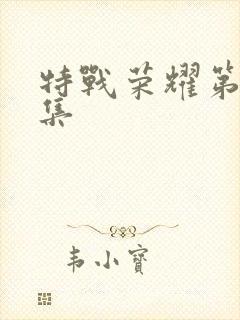 特戰荣耀第
集
韦小寶